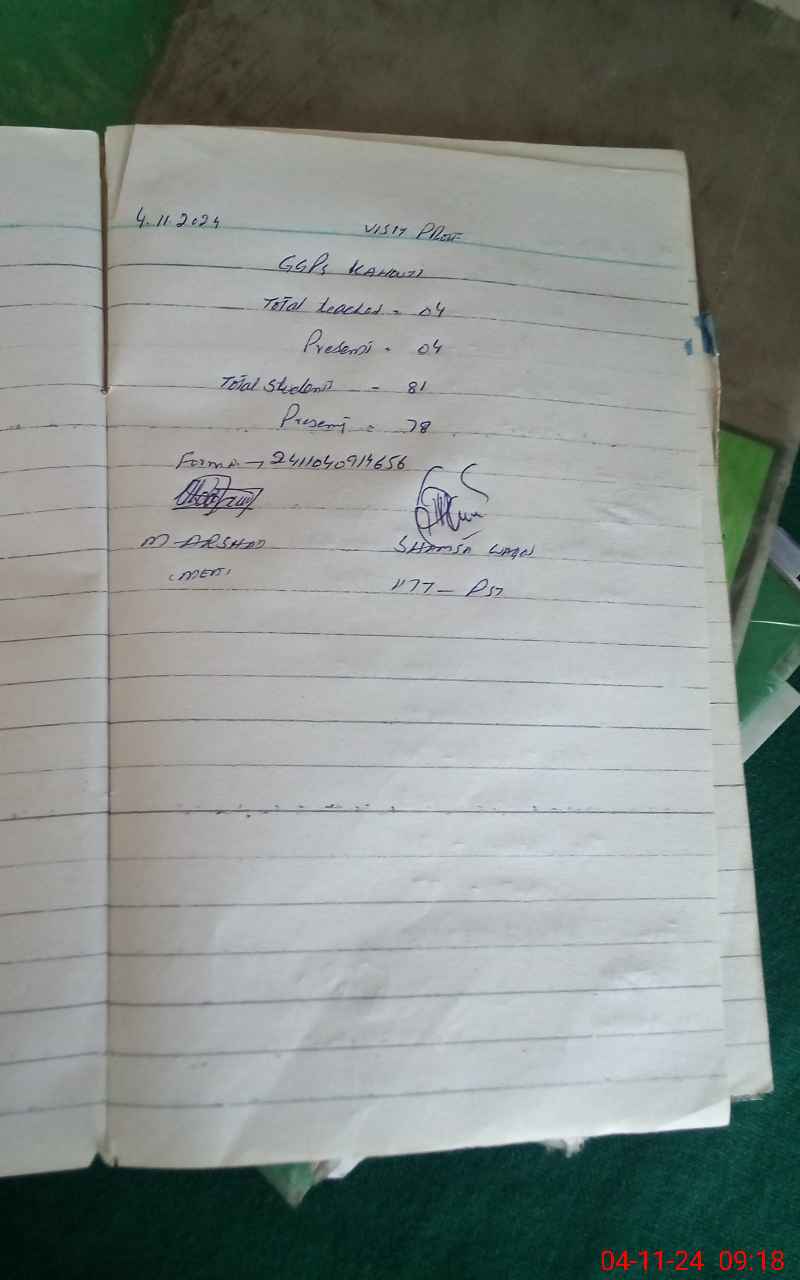 4.11.2024 VISIT PROF
GGPS
Total teacher = 04
Present = 04
Total student = 81
Present = 78
Form → 2411040914656
M ARSHAD
(MEA)
SHAMSA
PST
04-11-24 09:18